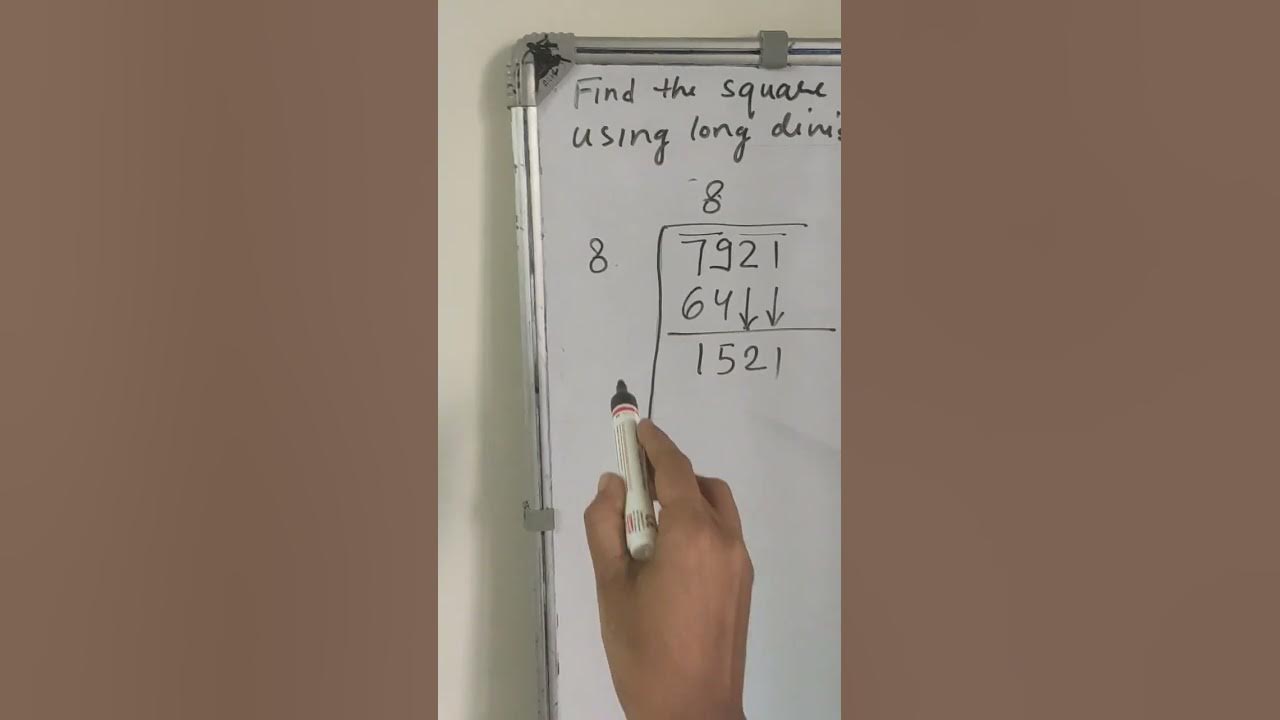 Find the square
using long divis
8
8 7921
64
1521